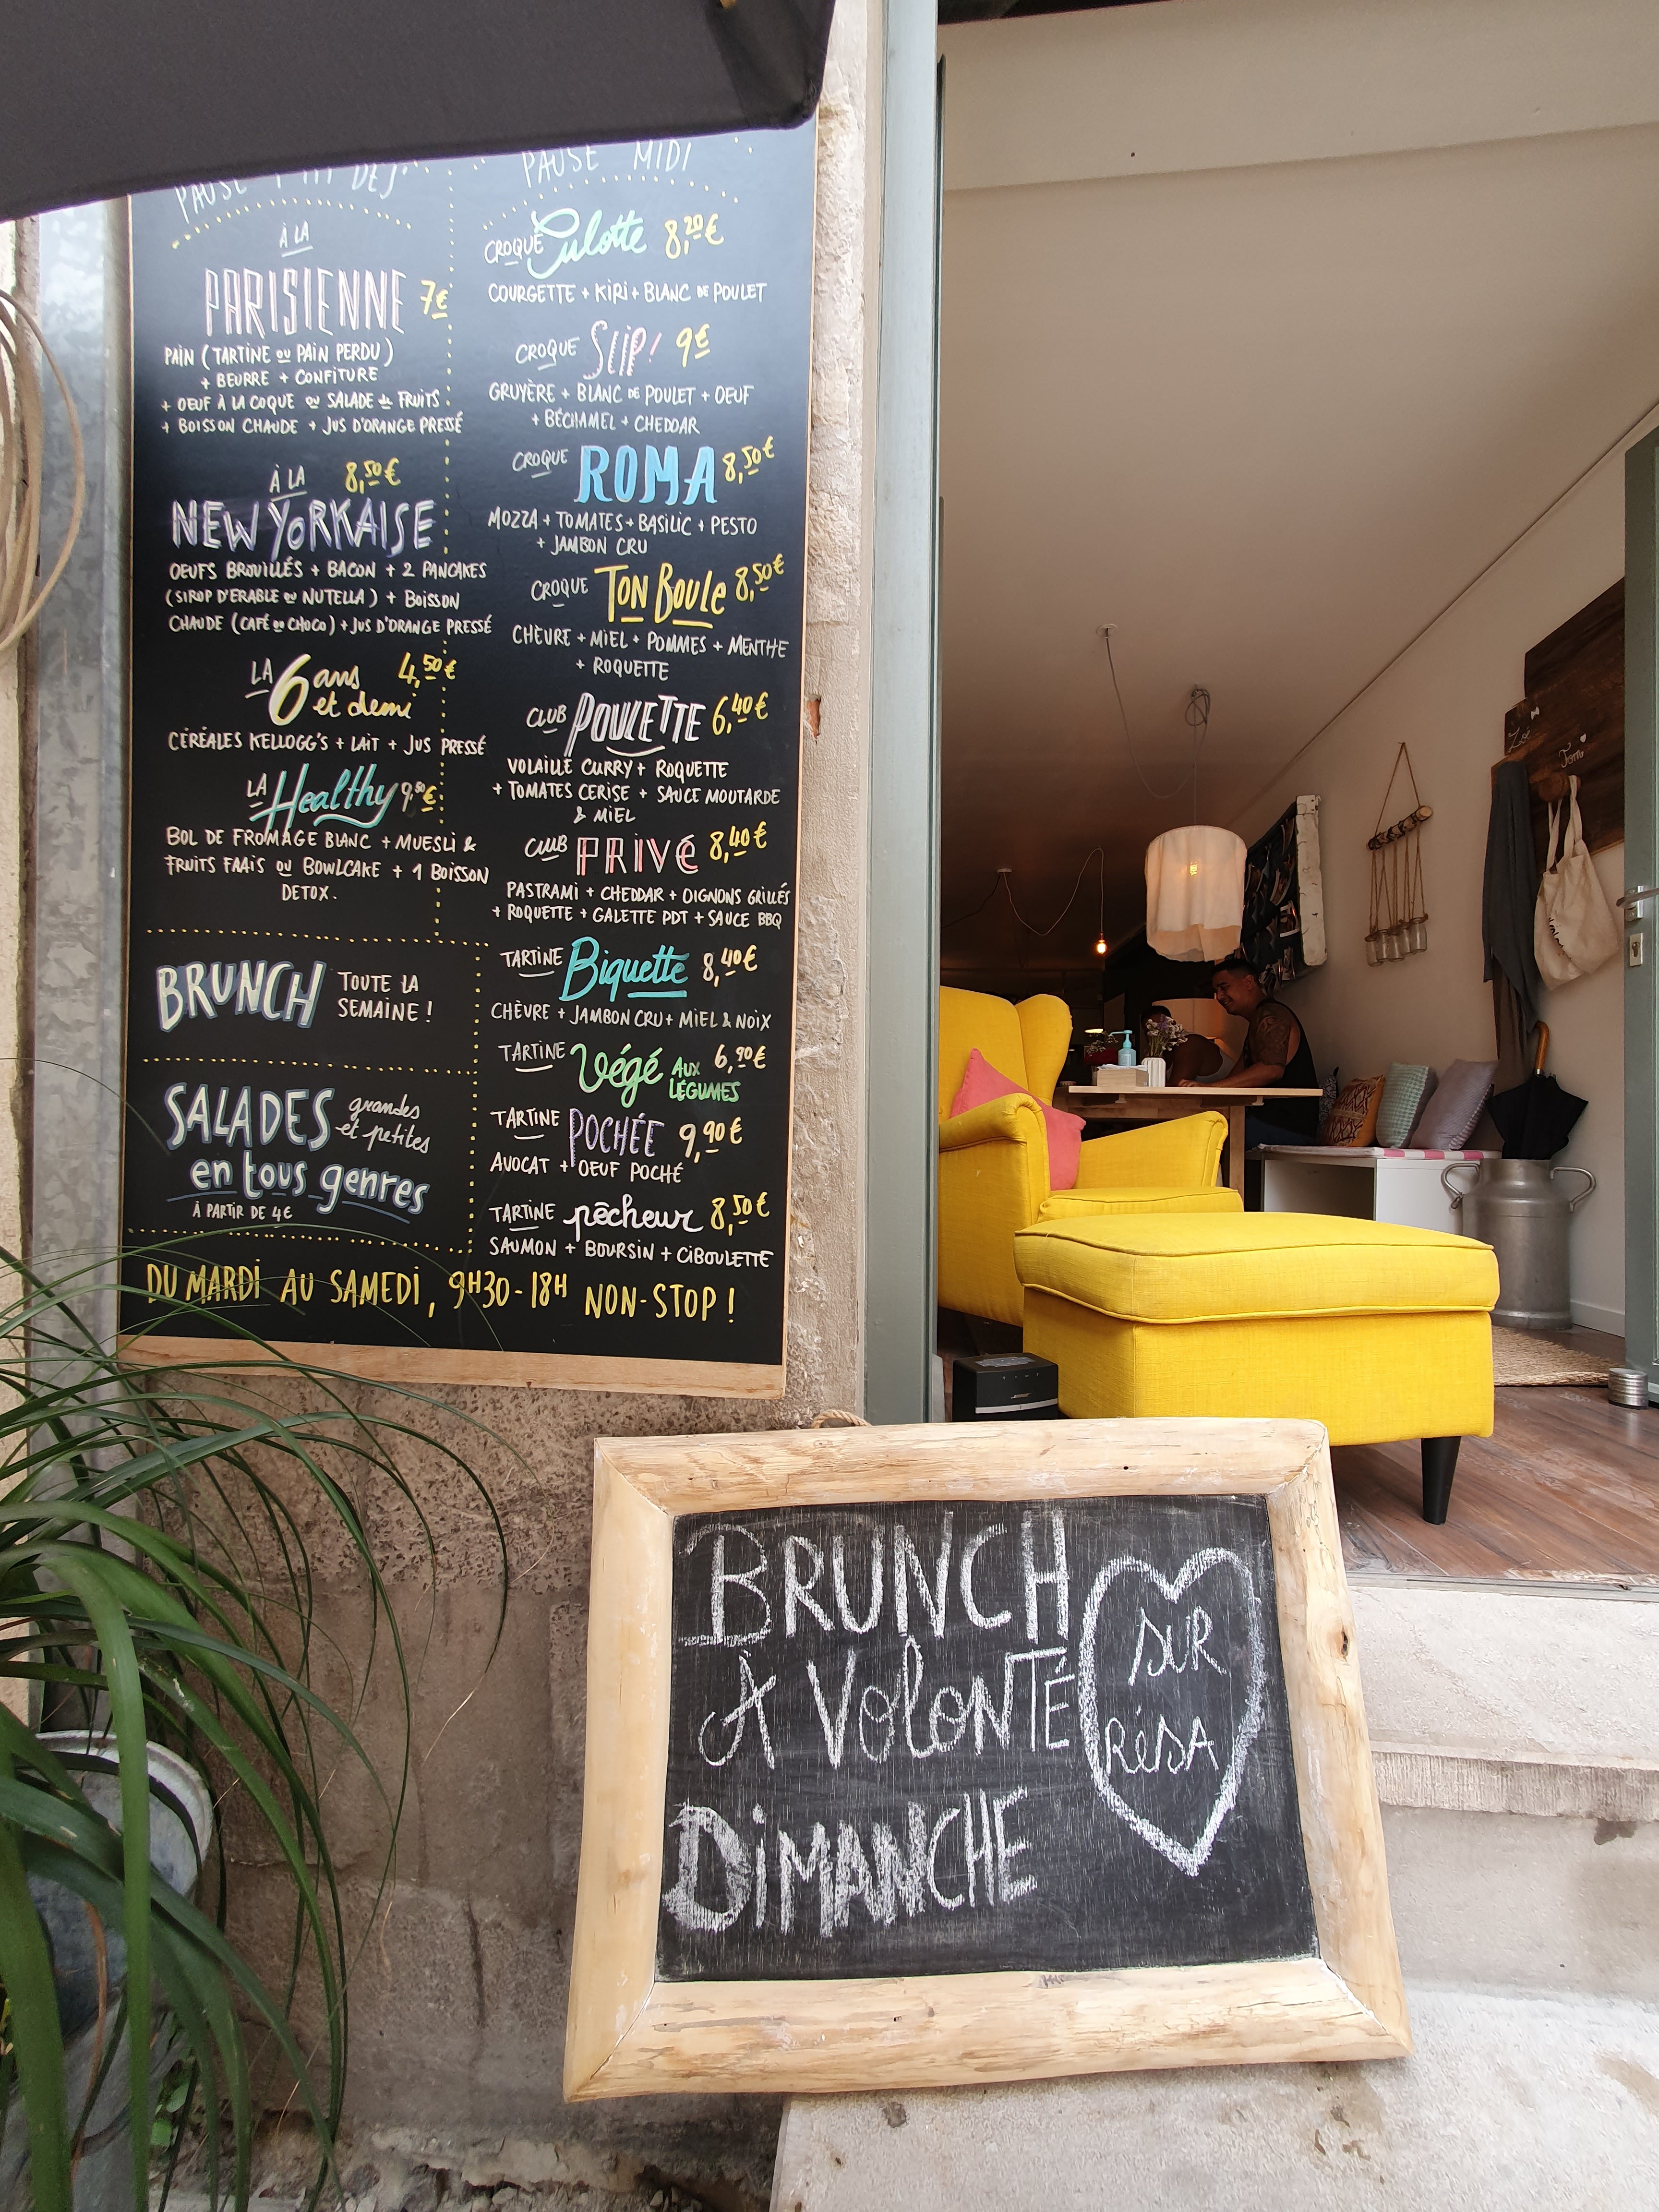 PAUSE P'TIT DEJ'
À LA
PARISIENNE 7€
PAIN (TARTINE OU PAIN PERDU)
+ BEURRE + CONFITURE
+ OEUF À LA COQUE OU SALADE DE FRUITS
+ BOISSON CHAUDE + JUS D'ORANGE PRESSÉ
À LA 8,50€
NEW YORKAISE
OEUFS BROUILLÉS + BACON + 2 PANCAKES
(SIROP D'ERABLE OU NUTELLA) + BOISSON
CHAUDE (CAFÉ OU CHOCO) + JUS D'ORANGE PRESSÉ
LA 6 ans et demi 4,50€
CÉRÉALES KELLOGG'S + LAIT + JUS PRESSÉ
LA Healthy 9,50€
BOL DE FROMAGE BLANC + MUESLI &
FRUITS FRAIS OU BOWLCAKE + 1 BOISSON
DETOX.
BRUNCH TOUTE LA
SEMAINE !
SALADES grandes
et petites
en tous genres
À PARTIR DE 4€
PAUSE MIDI
CROQUE Culotte 8,20€
COURGETTE + KIRI + BLANC DE POULET
CROQUE SLIP! 9€
GRUYÈRE + BLANC DE POULET + OEUF
+ BÉCHAMEL + CHEDDAR
CROQUE ROMA 8,50€
MOZZA + TOMATES + BASILIC + PESTO
+ JAMBON CRU
CROQUE TON BOULE 8,50€
CHÈVRE + MIEL + POMMES + MENTHE
+ ROQUETTE
CLUB POULETTE 6,40€
VOLAILLE CURRY + ROQUETTE
+ TOMATES CERISE + SAUCE MOUTARDE
& MIEL
CLUB PRIVÉ 8,40€
PASTRAMI + CHEDDAR + OIGNONS GRILLÉS
+ ROQUETTE + GALETTE PDT + SAUCE BBQ
TARTINE Biquette 8,40€
CHÈVRE + JAMBON CRU + MIEL & NOIX
TARTINE Végé AUX LÉGUMES 6,90€
TARTINE POCHÉE 9,90€
AVOCAT + OEUF POCHÉ
TARTINE pêcheur 8,50€
SAUMON + BOURSIN + CIBOULETTE
DU MARDI AU SAMEDI, 9H30-18H NON-STOP !
Zoé
Tom
BRUNCH
À VOLONTÉ
DIMANCHE
SUR
RÉSA